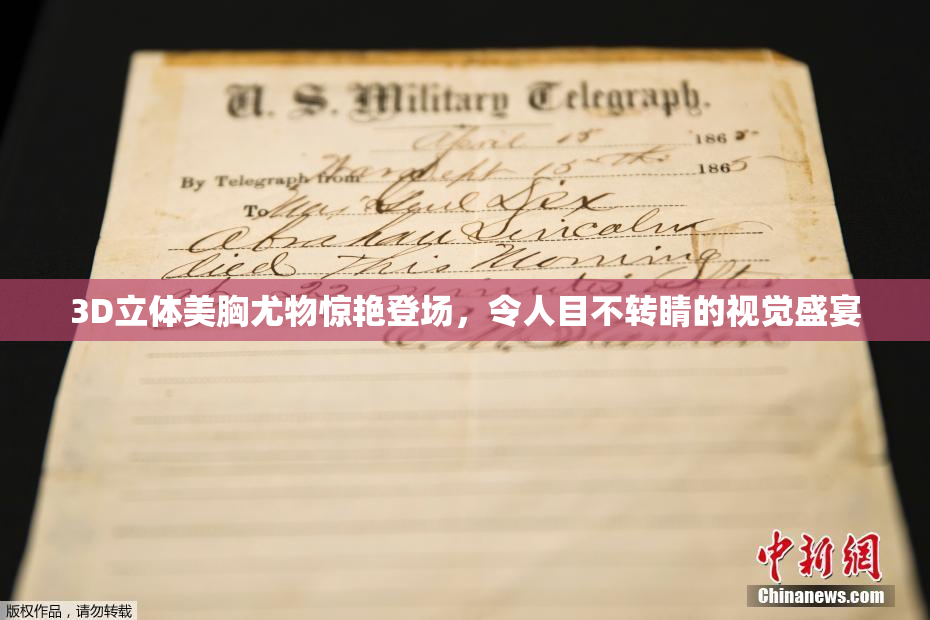 U. S. Military Telegraph.
April 15 1865
By Telegraph from War Dept 15th 1865
To Maj Genl Dix
Abraham Lincoln
died This Morning
at 22 minutes after
3D立体美胸尤物惊艳登场，令人目不转睛的视觉盛宴
E. M. Stanton
中新网
Chinanews.com
版权作品，请勿转载